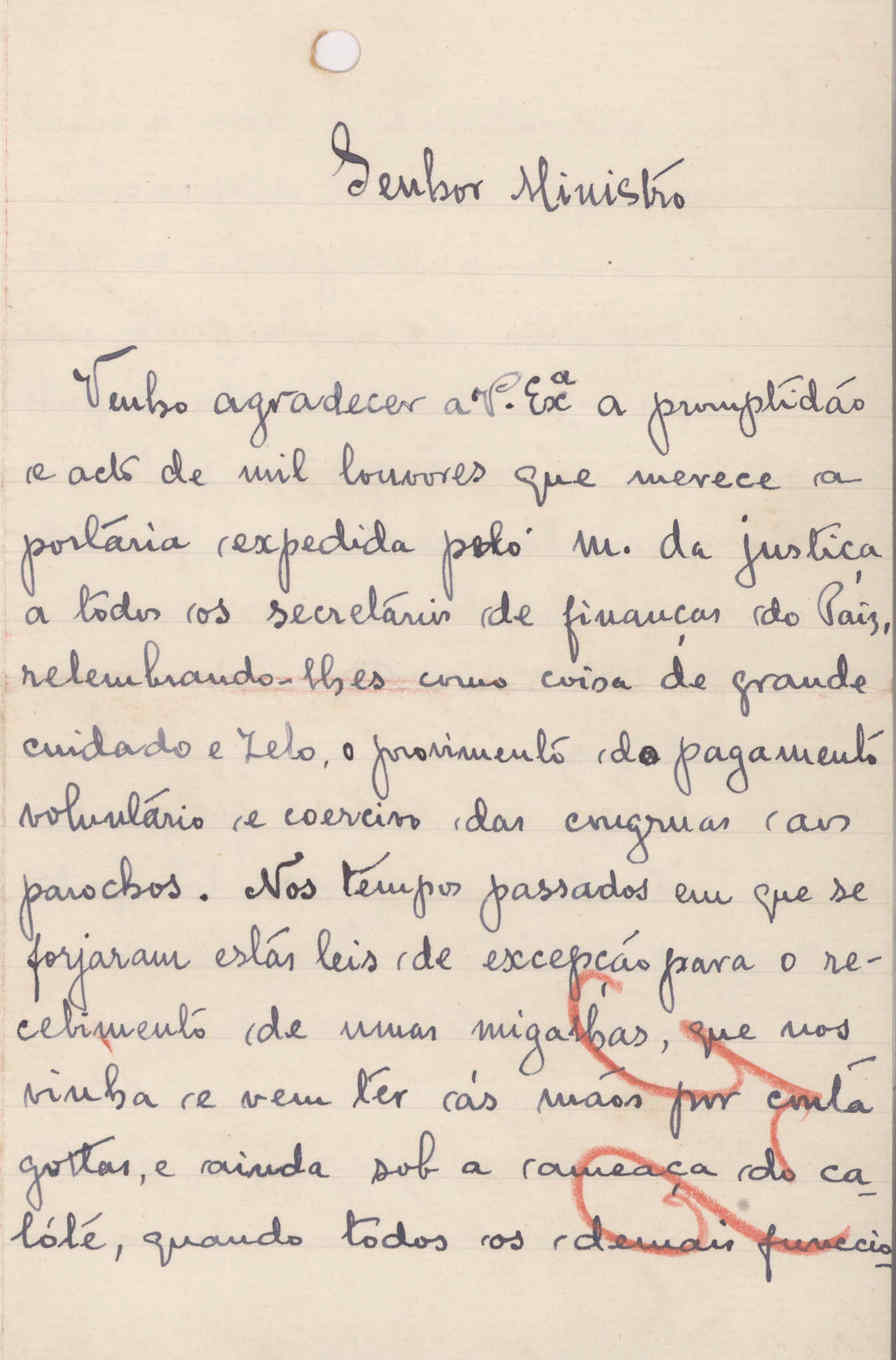 Senhor Ministro
Venho agradecer a V. Exª a promptidão
e acto de mil louvores que merece a
portária expedida pelo m. da justiça
a todos os secretários de finanças do Paiz,
relembrando-lhes como coisa de grande
cuidado e zelo, o provimento do pagamento
voluntário e coercivo das congruas aos
parochos. Nos tempos passados em que se
forjaram estás leis de excepção para o re-
cebimento de umas migalhas, que nos
vinha e vem ter ás mãos por conta
gottas, e ainda sob a ameaça do ca-
lóté, quando todos os demais funccio-